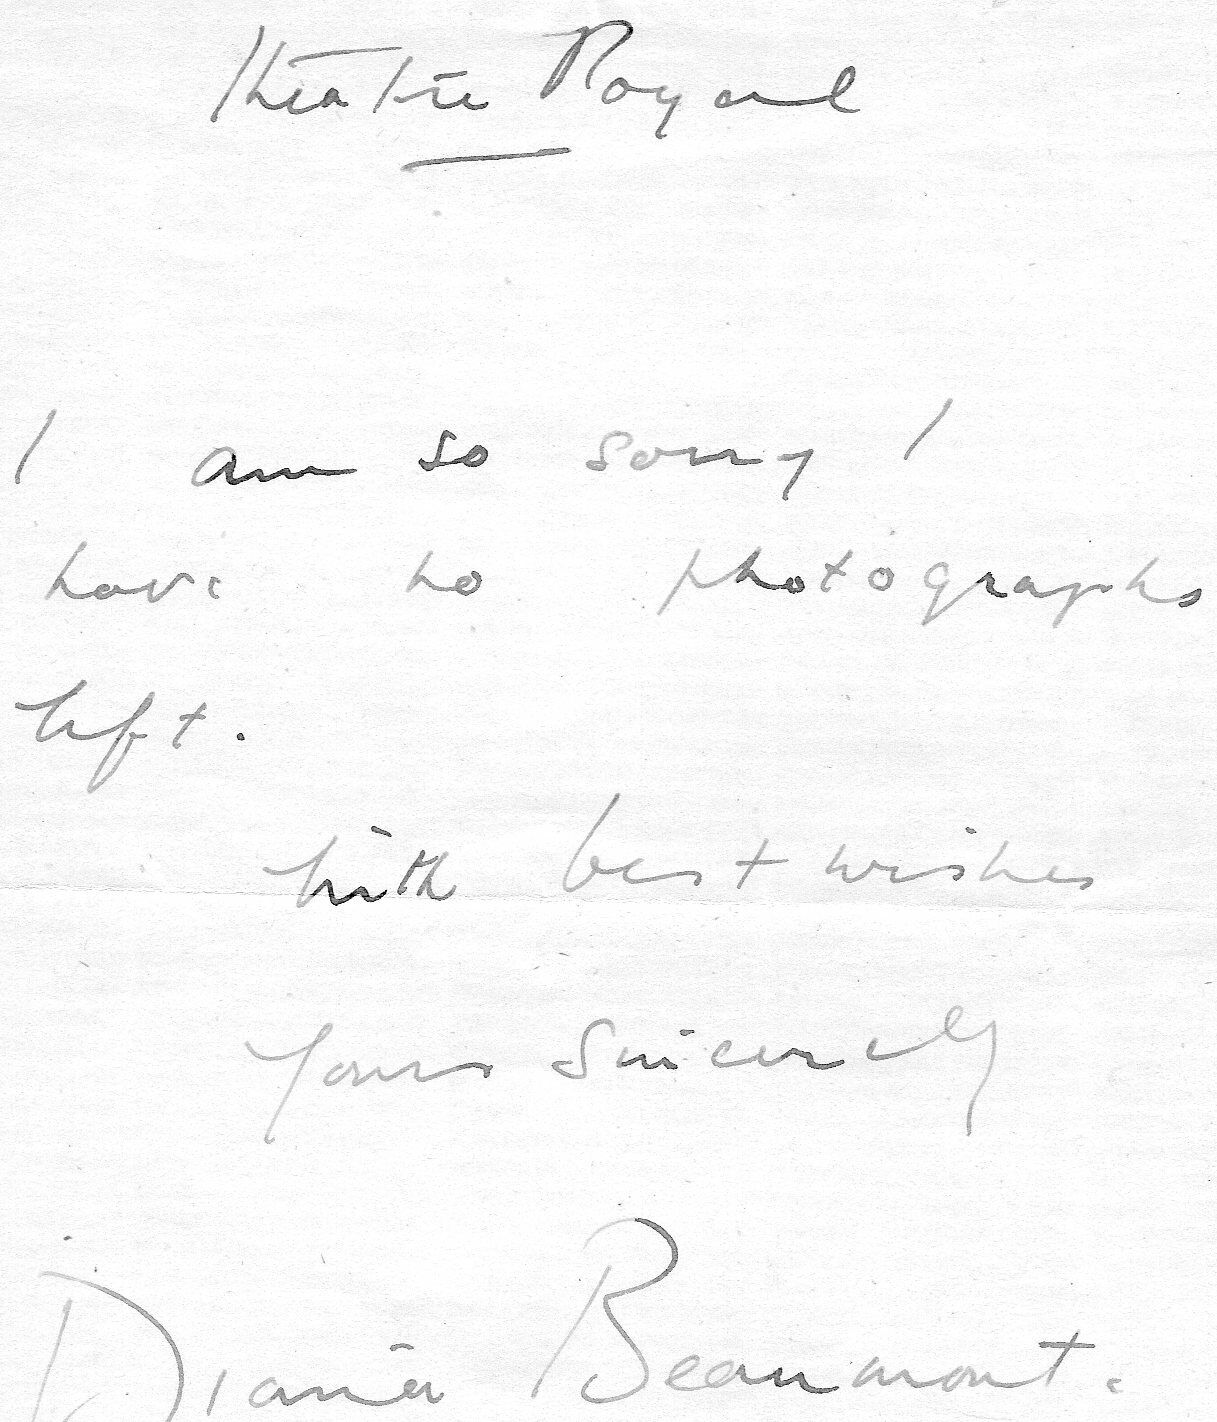 Theatre Royal
I am so sorry I
have no photographs
left.
With best wishes
Yours Sincerely
Diana Beaumont.